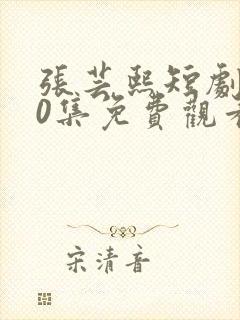 張芸熙短劇
0集免費觀看
宋清音